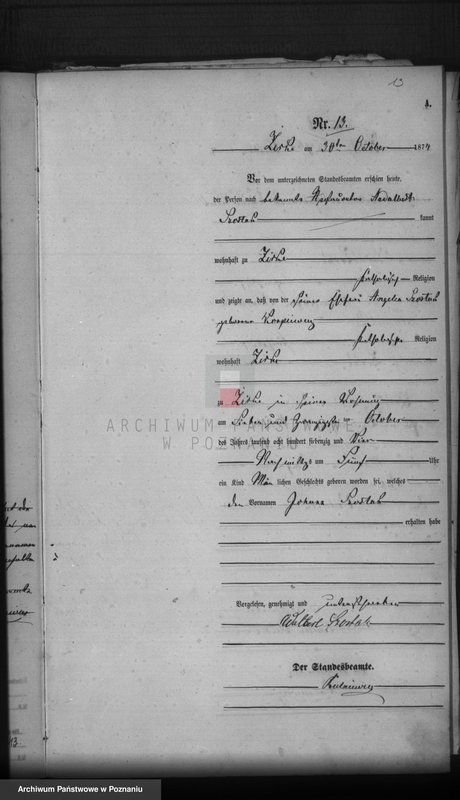 13
A.
Nr. 13.
Zirke am 30ten October 1874
Vor dem unterzeichneten Standesbeamten erschien heute,
der Person nach bekannt
Szostak kannt
wohnhaft zu Zirke
katholischer Religion
und zeigte an, daß von der seiner Ehefrau Szostak
geborene
katholischer Religion
wohnhaft Zirke
zu Zirke in seiner Wohnung
am Sieben und Zwanzigsten ten October
des Jahres tausend acht hundert siebenzig und Vier
Nachmittags um Fünf Uhr
ein Kind Männlichen Geschlechts geboren worden sei, welches
den Vornamen Szostak
erhalten habe
Vorgelesen, genehmigt und unterschrieben
Szostak
Der Standesbeamte.
ARCHIWUM PAŃSTWOWE
W POZNANIU
Archiwum Państwowe w Poznaniu